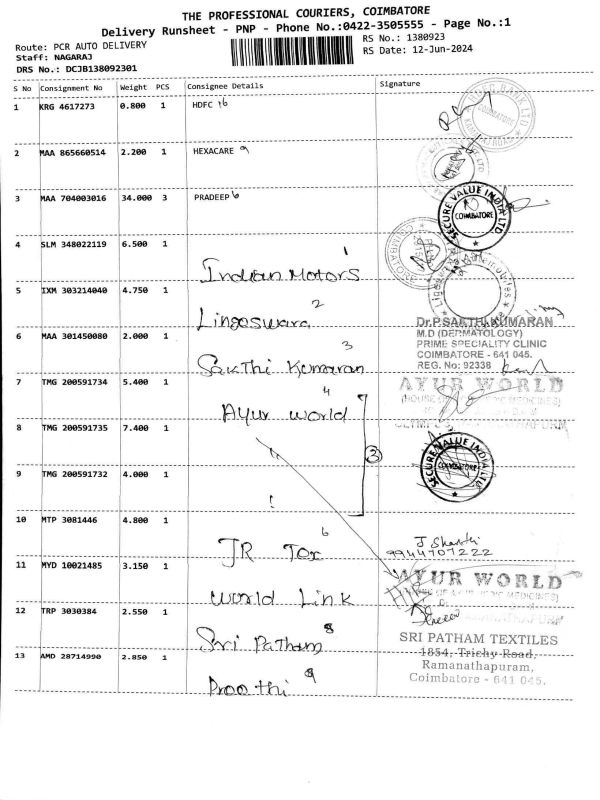 THE PROFESSIONAL COURIERS, COIMBATORE
Delivery Runsheet - PNP - Phone No.:0422-3505555 - Page No.:1
Route: PCR AUTO DELIVERY RS No.: 1380923
Staff: NAGARAJ RS Date: 12-Jun-2024
DRS No.: DCJB138092301
S No Consignment No Weight PCS Consignee Details Signature
1 KRG 4617273 0.800 1 HDFC
2 MAA 865660514 2.200 1 HEXACARE
3 MAA 704003016 34.000 3 PRADEEP
SECURE VALUE INDIA LTD
COIMBATORE
4 SLM 348022119 6.500 1
Indian Motors 1
5 IXM 303214040 4.750 1
Lingeswara 2
Dr.P.SAKTHI KUMARAN
6 MAA 301450080 2.000 1
M.D (DERMATOLOGY)
PRIME SPECIALITY CLINIC
COIMBATORE - 641 045.
REG. No: 92336
Sakthi Kumaran 3
7 TMG 200591734 5.400 1
AYUR WORLD
Ayur world 4
8 TMG 200591735 7.400 1
SECURE VALUE INDIA LTD
COIMBATORE
3
9 TMG 200591732 4.000 1
10 MTP 3081446 4.800 1
JR Tex 6
9944707222
11 MYD 10021485 3.150 1
AYUR WORLD
World Link
12 TRP 3030384 2.550 1
Sri Patham 8
SRI PATHAM TEXTILES
1854, Trichy Road,
13 AMD 28714990 2.850 1
Ramanathapuram,
Coimbatore - 641 045.